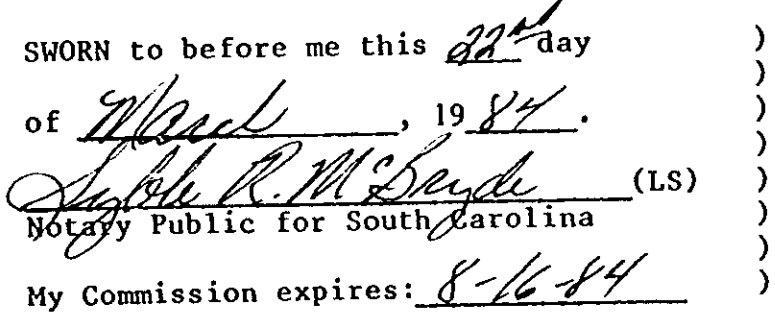 SWORN to before me this 22nd day )
)
of March, 1984. )
)
Syble R. McBryde (LS) )
Notary Public for South Carolina )
)
My Commission expires: 8-16-84 )